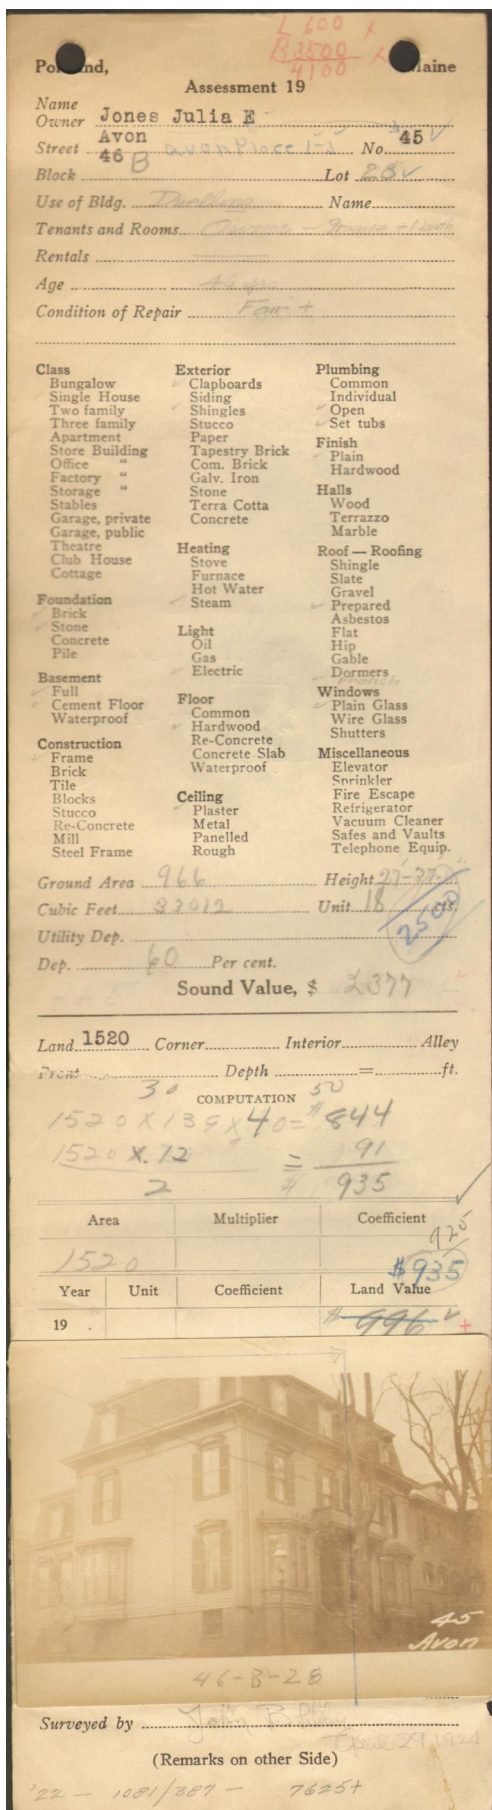 L 600 x
B 3500 x
4100
Portland, Maine
Assessment 19
Name
Owner Jones Julia E
Avon
Street Avon Place 1-3 No. 45
46 B
Block Lot 28
Use of Bldg. Dwelling Name
Tenants and Rooms Owner — + 1 bath
Rentals
Age 46 yrs
Condition of Repair Fair +
Class
Bungalow
Single House
Two family
Three family
Apartment
Store Building
Office "
Factory "
Storage "
Stables
Garage, private
Garage, public
Theatre
Club House
Cottage
Foundation
Brick
Stone
Concrete
Pile
Basement
Full
Cement Floor
Waterproof
Construction
Frame
Brick
Tile
Blocks
Stucco
Re-Concrete
Mill
Steel Frame
Exterior
Clapboards
Siding
Shingles
Stucco
Paper
Tapestry Brick
Com. Brick
Galv. Iron
Stone
Terra Cotta
Concrete
Heating
Stove
Furnace
Hot Water
Steam
Light
Oil
Gas
Electric
Floor
Common
Hardwood
Re-Concrete
Concrete Slab
Waterproof
Ceiling
Plaster
Metal
Panelled
Rough
Plumbing
Common
Individual
Open
Set tubs
Finish
Plain
Hardwood
Halls
Wood
Terrazzo
Marble
Roof — Roofing
Shingle
Slate
Gravel
Prepared
Asbestos
Flat
Hip
Gable
Dormers
French
Windows
Plain Glass
Wire Glass
Shutters
Miscellaneous
Elevator
Sprinkler
Fire Escape
Refrigerator
Vacuum Cleaner
Safes and Vaults
Telephone Equip.
Ground Area 966 Height 27'-37'
Cubic Feet 33012 Unit 18 cts.
2500
Utility Dep.
Dep. 60 Per cent.
Sound Value, $ 2377
Land 1520 Corner Interior Alley
Front Depth = ft.
30 COMPUTATION 50
1520 x 139 x 40 = $844
1520 x .12 = 91
2 $ 935
Area Multiplier Coefficient
925
1520 $935
Year Unit Coefficient Land Value
19 . $ 996 +
45
Avon
46-B-28
Surveyed by John
April 29 1924
(Remarks on other Side)
'22 — 1081/387 — 7625+